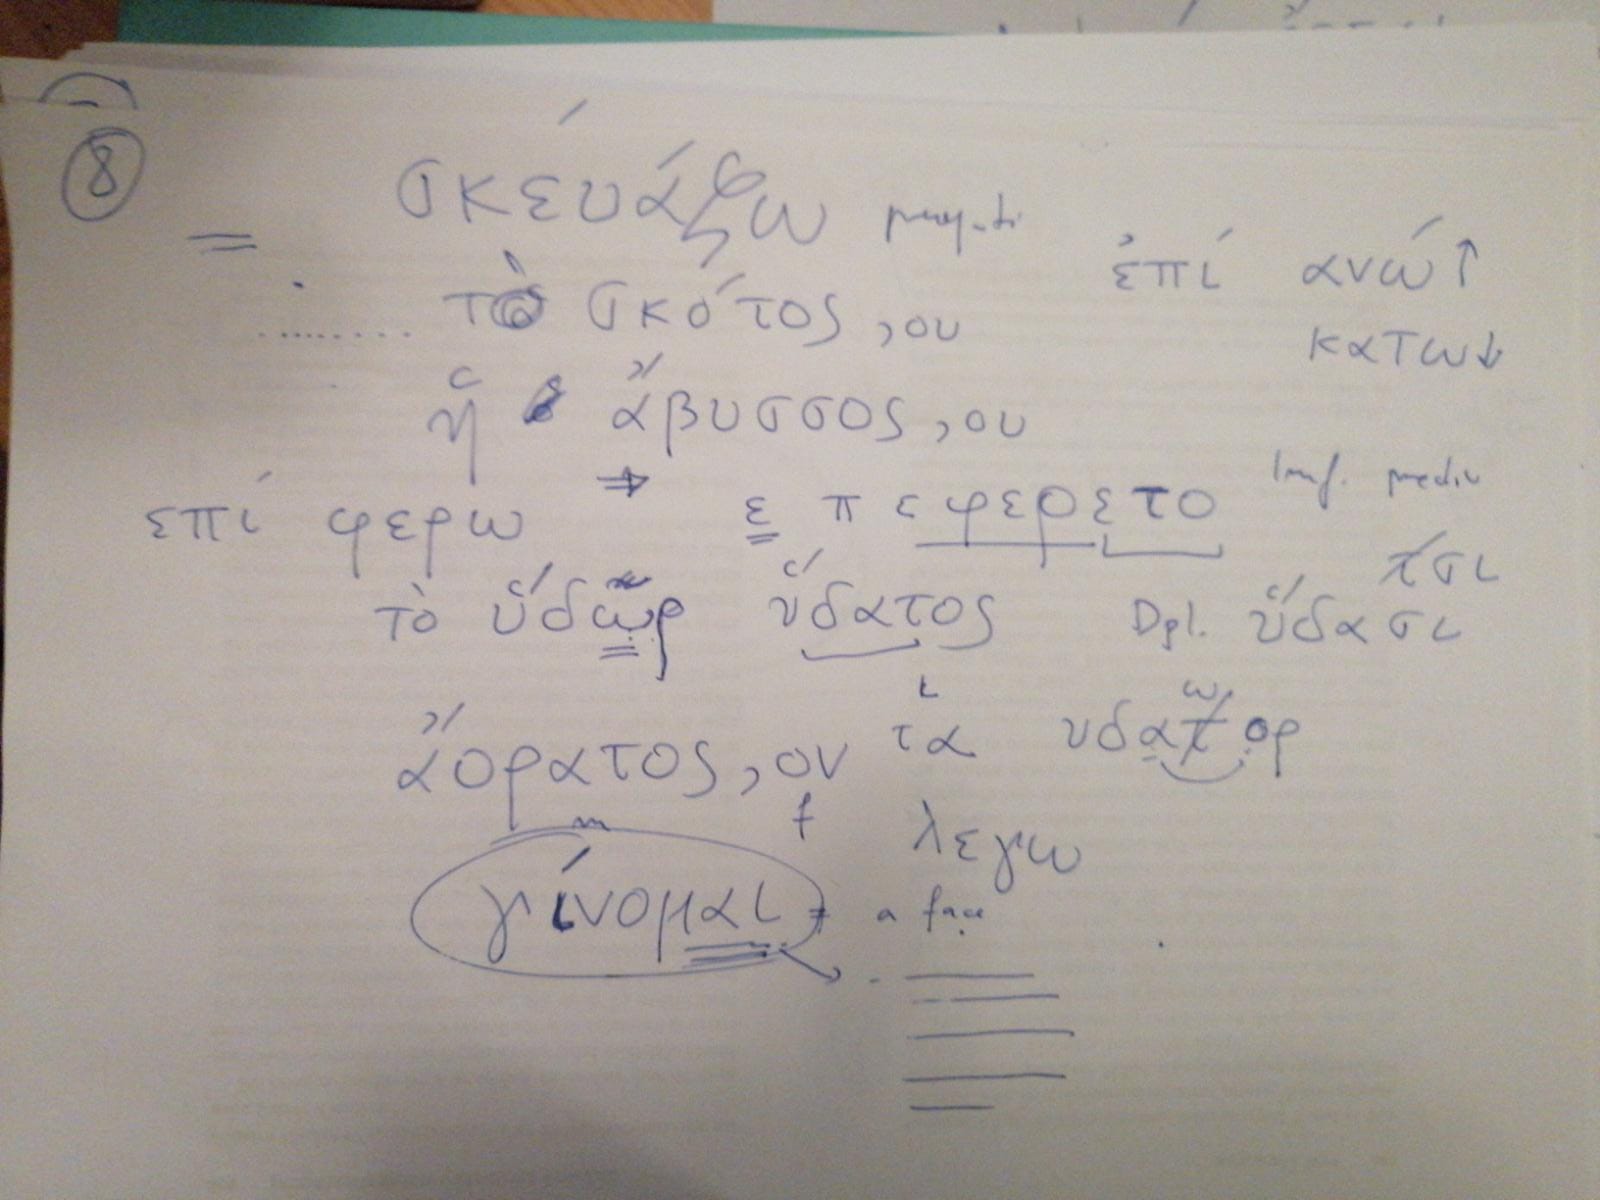 8
σκευάζω
ἐπί ανώ ↑
τὸ σκότος, ου
κατω ↓
ἡ ἄβυσσος, ου
επί φερω ⇒ ε π ε φερετο Imf. mediu
τσι
τὸ ὕδωρ ὕδατος Dpl. ὕδασι
ι ω
ἄορατος, ον τα υδατ ορ
m f λεγω
γίνομαι = a face